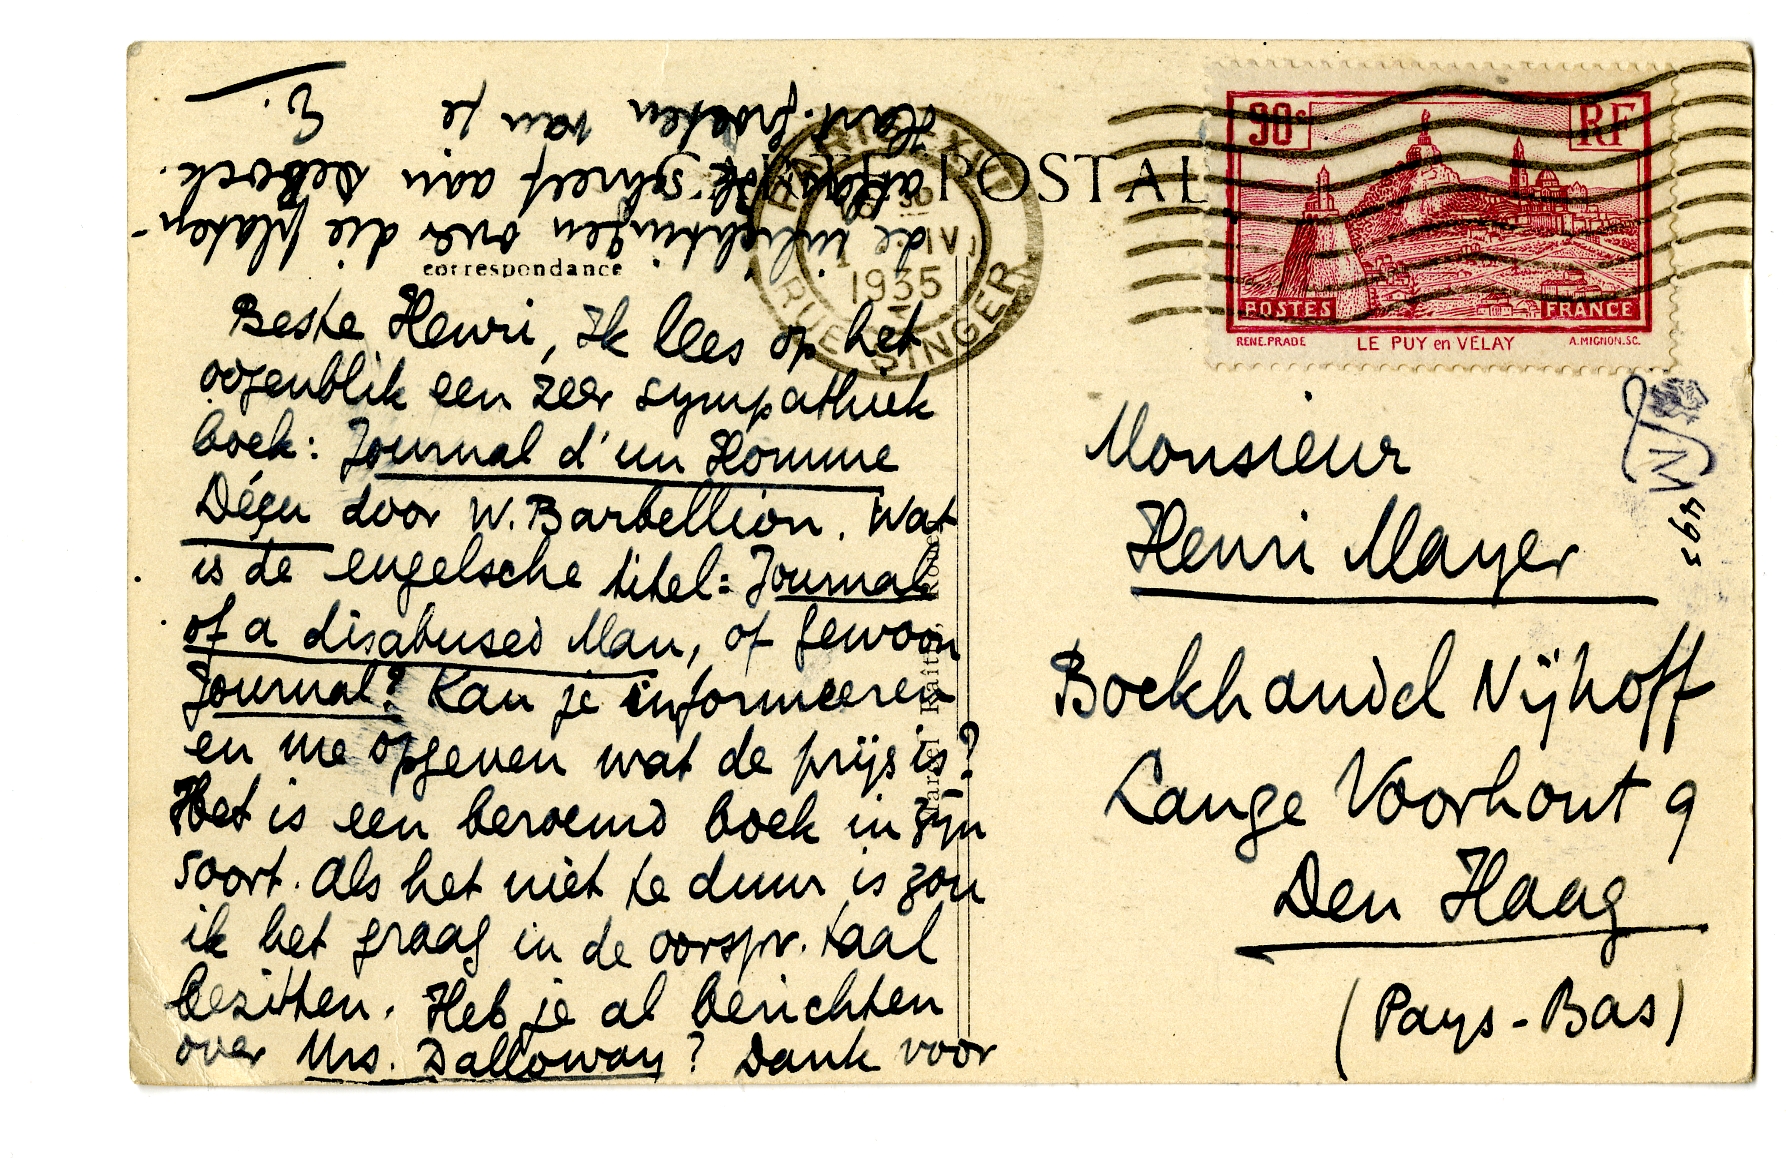 CARTE POSTALE
correspondance
Beste Henri, Ik lees op het
oogenblik een zeer sympathiek
boek: Journal d'un Homme
Déçu door W. Barbellion. Wat
is de engelsche titel: Journal
of a disabused Man, of gewoon
Journal? Kan je informeeren
en me opgeven wat de prijs is?
Het is een beroemd boek in zijn
soort. Als het niet te duur is zou
ik het graag in de oorspr. taal
bezitten. Heb je al berichten
over Mrs. Dalloway? Dank voor
de inlichtingen over die platen-
atlas. Ik schreef aan de Bock.
Hart. groeten van je
E.
PARIS XVI
IV
1935
RUE SINGER
90c RF
POSTES FRANCE
RENE.PRADE LE PUY en VELAY A.MIGNON.SC.
Monsieur
Henri Mayer
Boekhandel Nijhoff
Lange Voorhout 9
Den Haag
(Pays-Bas)